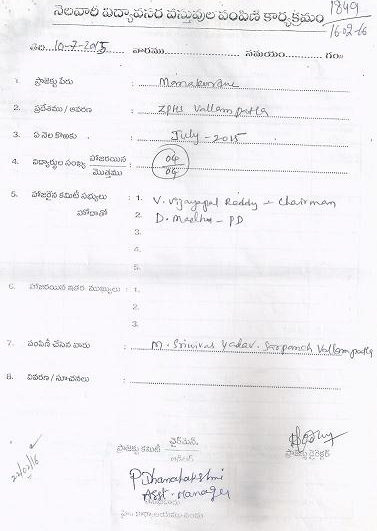 నెలవారీ విద్యావసర వస్తువుల పంపిణీ కార్యక్రమం
1849
16-02-16
తేది 10-7-2015 వారము సమయం గం॥
1. ప్రాజెక్టు పేరు : Manakurdu
2. ప్రదేశము / ఆవరణ : ZPHS Vallampatla
3. ఏ నెల కొఱకు : July - 2015
4. విద్యార్థుల సంఖ్య హాజరయిన / మొత్తము : 04 / 04
5. హాజరైన కమిటీ సభ్యులు హోదాతో : 1. V. Vijayapal Reddy - Chairman
2. D. Madhu - PD
3.
4.
5.
6. హాజరయిన ఇతర ముఖ్యులు : 1.
2.
3.
7. పంపిణీ చేసిన వారు : M. Srinivas Yadav. Sarpanch Vallampatla
8. వివరణ / సూచనలు :
ప్రాజెక్టు కమిటీ ఛైర్మెన్
ప్రాజెక్టు డైరెక్టర్
P. Dhanalakshmi
Asst. Manager